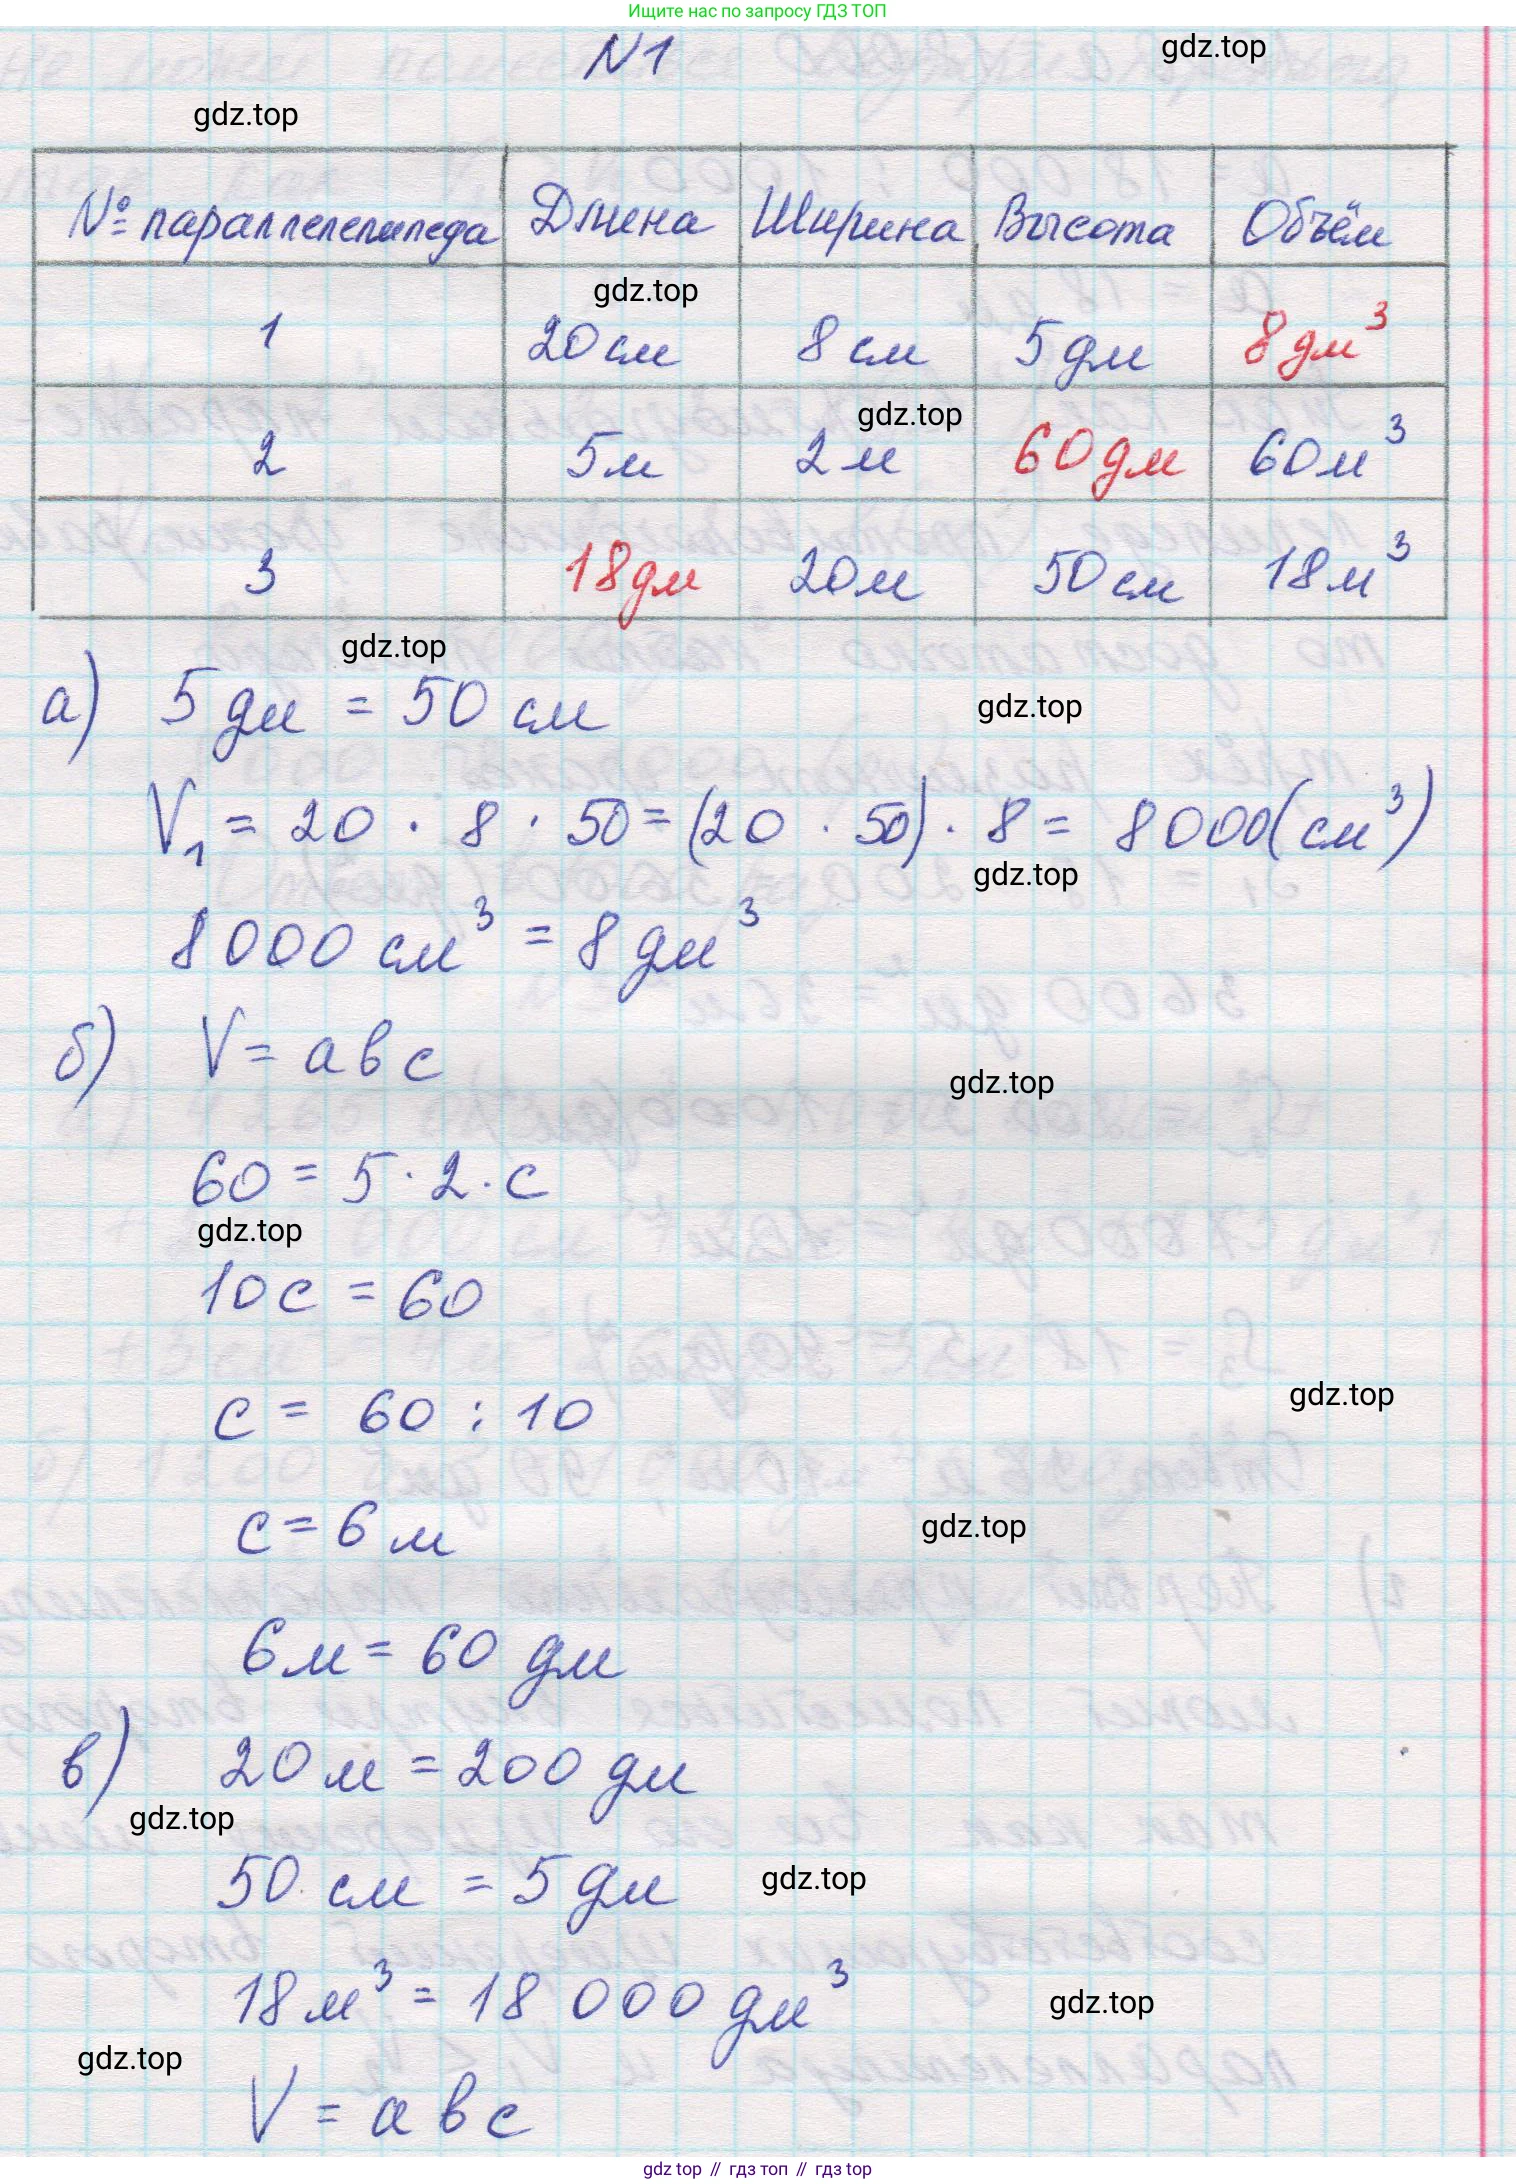 Ищите нас по запросу ГДЗ ТОП
N1
gdz.top
gdz.top
№ параллелепипеда Длина Ширина Высота Объём
gdz.top
1 20 см 8 см 5 дм 8 дм³
gdz.top
2 5 м 2 м 60 дм 60 м³
3 18 дм 20 м 50 см 18 м³
gdz.top
а) 5 дм = 50 см
gdz.top
V₁ = 20 · 8 · 50 = (20 · 50) · 8 = 8000 (см³)
gdz.top
8000 см³ = 8 дм³
б) V = a b c
gdz.top
60 = 5 · 2 · c
gdz.top
10c = 60
gdz.top
c = 60 : 10
c = 6 м
gdz.top
6 м = 60 дм
в) 20 м = 200 дм
gdz.top
50 см = 5 дм
gdz.top
18 м³ = 18 000 дм³
gdz.top
gdz.top
V = a b c
gdz top // гдз топ // gdz top